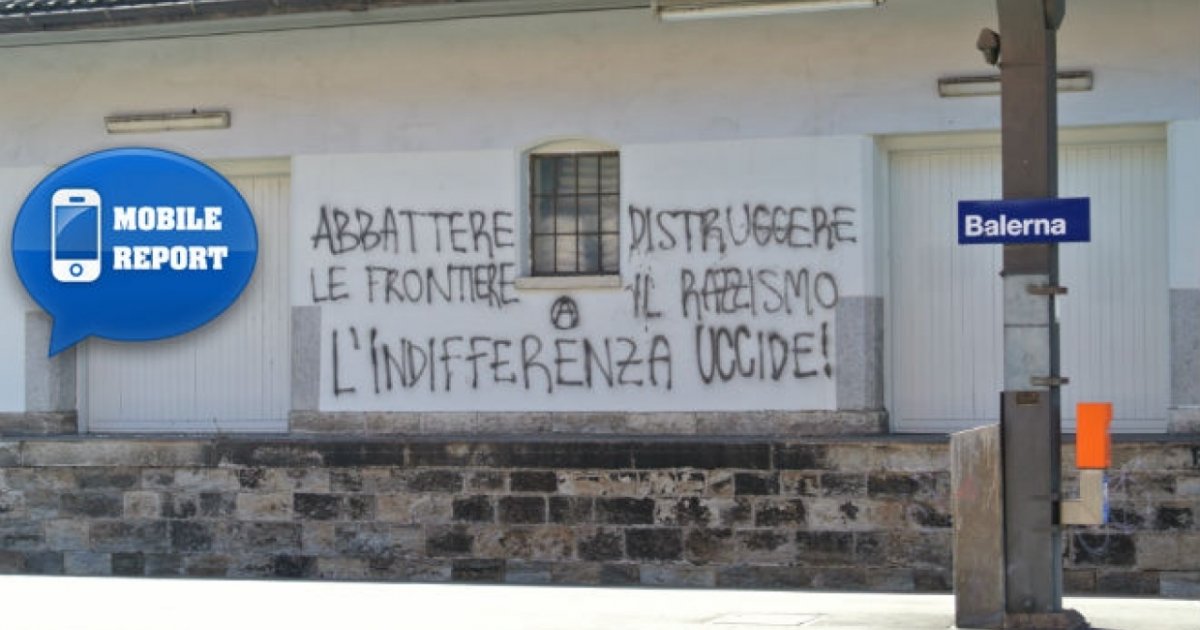 MOBILE
REPORT
ABBATTERE
LE FRONTIERE
DISTRUGGERE
IL RAZZISMO
A
L'INDIFFERENZA UCCIDE!
Balerna